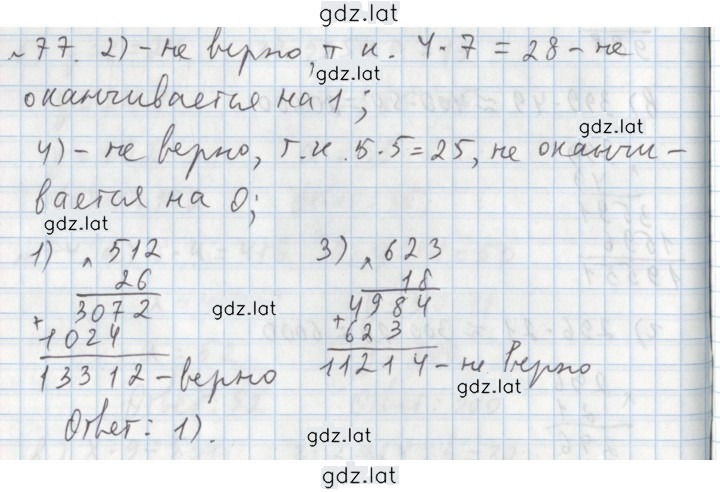 gdz.lat
№77. 2) – не верно, т к. 4·7 = 28 – не
gdz.lat
оканчивается на 1;
gdz.lat
4) – не верно, т.к. 5·5 = 25, не оканчи –
вается на 0;
gdz.lat
1) × 512
26
3072
+
1024
13312 – верно
3) × 623
18
4984
+
623
11214 – не верно
gdz.lat
gdz.lat
Ответ: 1).
gdz.lat
gdz.lat